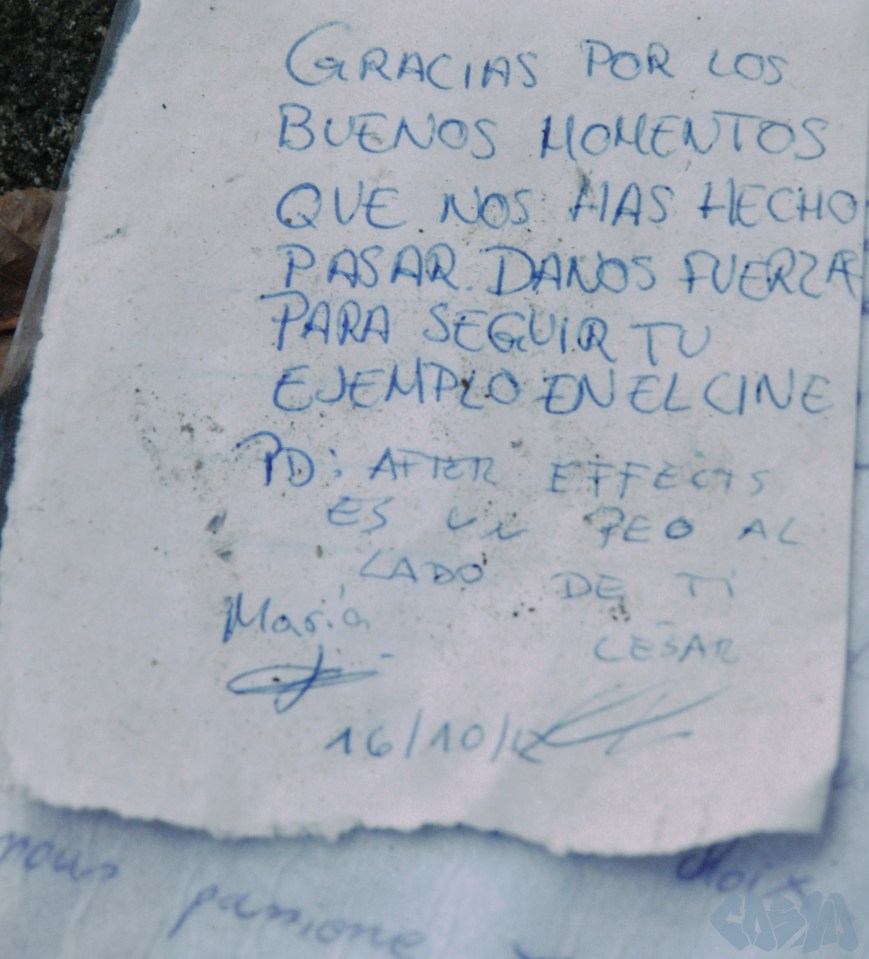 GRACIAS POR LOS
BUENOS MOMENTOS
QUE NOS HAS HECHO
PASAR. DANOS FUERZA
PARA SEGUIR TU
EJEMPLO EN EL CINE
PD: AFTER EFFECTS
ES UN PEO AL
LADO DE TI
María
CESAR
16/10/
passione